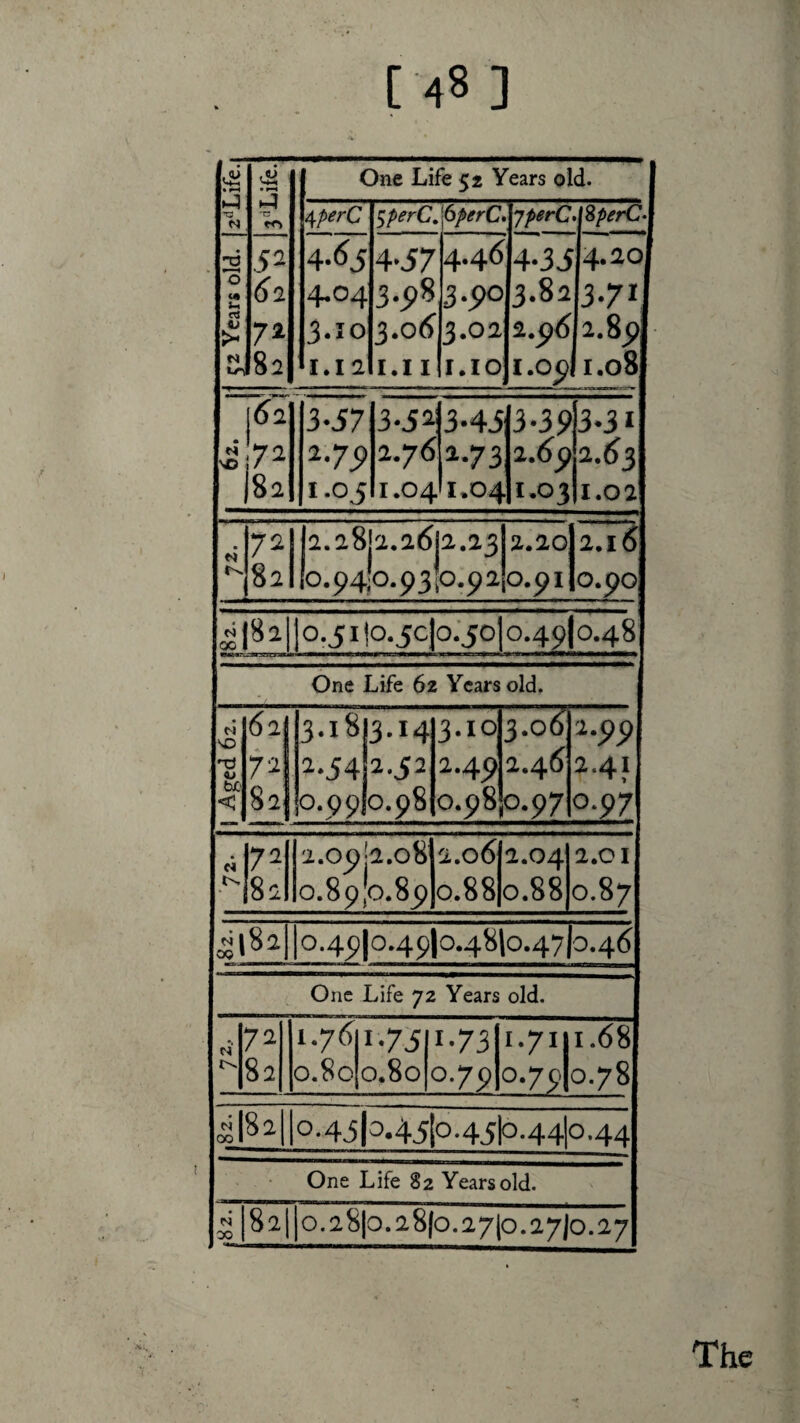 [ 48 ]
2d Life. 3d Life. One Life 52 Years old.
4 per C 5 per C. 6 per C. 7 per C. 8 per C.
52 Years old. 52 4.65 4.57 4.46 4.35 4.20
62 4.04 3.98 3.90 3.82 3.71
72 3.10 3.06 3.02 2.96 2.89
82 1.12 1.11 1.10 1.09 1.08
62. 62 3.57 3.52 3.45 3.39 3.31
72 2.79 2.76 2.73 2.69 2.63
82 1.05 1.04 1.04 1.03 1.02
72. 72 2.28 2.26 2.23 2.20 2.16
82 0.94 0.93 0.92 0.91 0.90
82. 82 0.51 0.50 0.50 0.49 0.48
One Life 62 Years old.
Aged 62. 62 3.18 3.14 3.10 3.06 2.99
72 2.54 2.52 2.49 2.46 2.41
82 0.99 0.98 0.98 0.97 0.97
72. 72 2.09 2.08 2.06 2.04 2.01
82 0.89 0.89 0.88 0.88 0.87
82. 82 0.49 0.49 0.48 0.47 0.46
One Life 72 Years old.
72. 72 1.76 1.75 1.73 1.71 1.68
82 0.80 0.80 0.79 0.79 0.78
82. 82 0.45 0.45 0.45 0.44 0.44
One Life 82 Years old.
82. 82 0.28 0.28 0.27 0.27 0.27
The